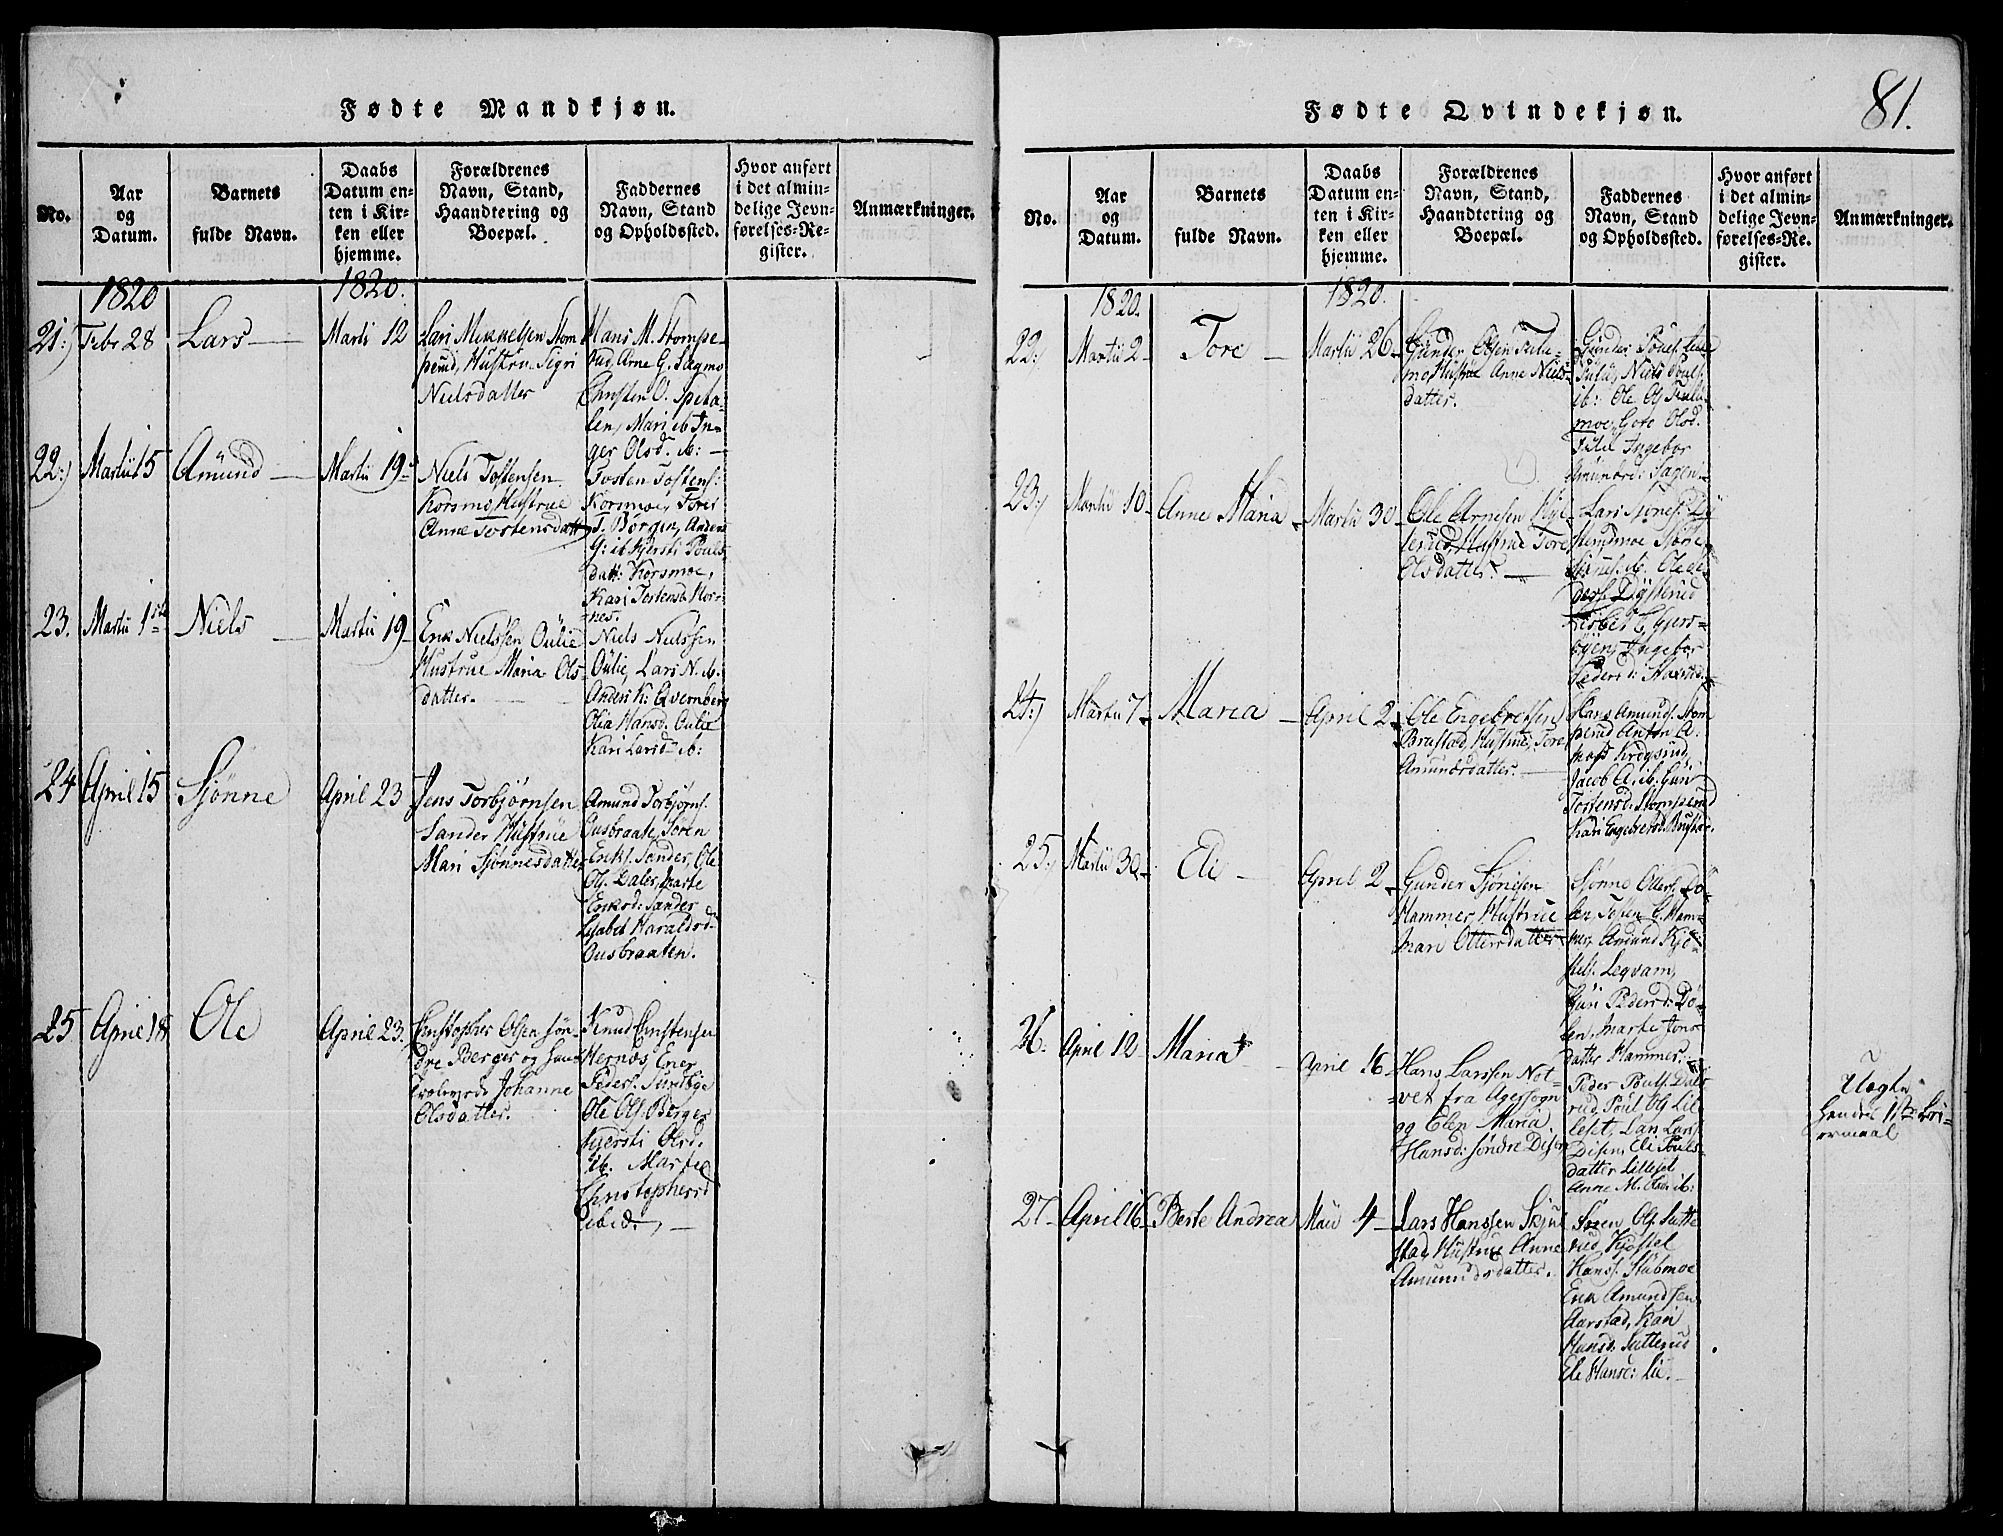 81.
Fødte Mandkjøn.
No.
Aar
og
Datum.
Barnets
fulde Navn.
Daabs
Datum en-
ten i Kir-
ken eller
hjemme.
Forældrenes
Navn, Stand,
Haandtering og
Boepæl.
Faddernes
Navn, Stand
og Opholdssted.
Hvor anført
i det almin-
delige Jevn-
førelses-Re-
gister.
Anmærkninger.
1820
1820.
21:)
Febr 28
Lars
Marti 12
Lars Mikkelsen Stom
perud, Hustru Sigri
Nielsdatter
Hans M. Stompe-
rud, Arne G. Sagmo
Christen O. Speta-
len, Mari ib In-
ger Olsd. ib:
22:)
Martii 15
Amund
Martii 19
Niels Tostensen
Korsmo, Hustrue
Anne Tostensdatt
Tosten Tostens:
Korsmoe, Tores
T. Børgen, Anders
G: ib Kjersti Pouls
datt: Korsmoe,
Kari Tostensd. Hor-
nes.
23.
Martii 1ste
Niels
Martii 19
Erik Nielssen Oulie
Hustrue Maria Ols-
datter.
Niels Nielssen
Oulie, Lars N. ib.
Anders K: Qvernberg
Olia Hansd. Oulie
Kari Larsd ib:
24
April 15
Sjønne
April 23
Jens Torbjørnsen
Sander Hustrue
Mari Sjønnesdatter
Amund Torbjørns.
Ousbraate, Søren
Eriks. Sander, Ole
Ols. Dalen, Marte
Eriksd: Sander
Lisabet Haraldsd
Ousbraaten.
25
April 18
Ole
April 23.
Christopher Olsen søn-
dre Berger og
Johanne
Olsdatter.
Knud Christensen
Hernæs, Ener
Peders. Sundbye
Ole Ols. Berger
Kjersti Olsd.
ib. Marte
Christophersd
ibid:
Fødte Qvindekjøn.
No.
Aar
og
Datum.
Barnets
fulde Navn.
Daabs
Datum en-
ten i Kir-
ken eller
hjemme.
Forældrenes
Navn, Stand,
Haandtering og
Boepæl.
Faddernes
Navn, Stand
og Opholdssted.
Hvor anført
i det almin-
delige Jevn-
førelses-Re-
gister.
Anmærkninger.
1820.
1820.
22:)
Martii 2
Tore
Martii 26
Gunder Olsen Tulu-
moe, Hustrue Anne Niels-
datter.
Gunder Pouls.
Niels Pouls.
ib: Ole Ols Tulu-
moe, Gote Olsd.
Ingebor
Amundsd: Sagen
23:)
Martii 10
Anne Maria
Martii 30
Ole Arnesen Kyl-
lerud, Hustrue Tore
Olsdatter.
Lars
ib. Ole
Dysterud
Lisbet
Ingebor
Pedersd:
24:)
Martii 7
Maria
April 2
Ole Engebretsen
Brustad, Hustrue, Tore
Amundsdatter.
Hans Amunds. Stom
perud Anton A-
Jacob A. ib. Gun
Tostensd. Stomperud
Kari Engebretsd. Brustad.
25:)
Martii 30
Eli
April 2
Gunder Sjønisen
Hammer, Hustrue
Mari Ottersdatter
Sjønne Otters. Dø-
len Tosten G. Ham-
mer, Amund Kje-
stels. Leqvam,
Guri Pedersd: Dø-
len, Marte Jons
datter Hammer.
26.
April 12
Maria
April 16
Hans Larssen Not-
vet fra Agersogn
og Elen Maria
Hansd: søndre Disen
Peder Pouls. Dals-
rud, Poul Ols Lil-
leset, Lars Lars
Disen, Eli Pouls-
datter Lilleset
Anne M. ib:
Uægte
hendes 1ste Leir-
ermaal
27
April 16
Berte Andrea
Maii 4
Lars Hanssen Skjul
stad, Hustrue Anne
Amundsdatter.
Søren Ols. Sutte
rud, Kjøstel
Hans. Stubmoe
Erik Amundsen
Aarstad, Kari
Hansd: Sutterud
Ele Hansd: Lie.